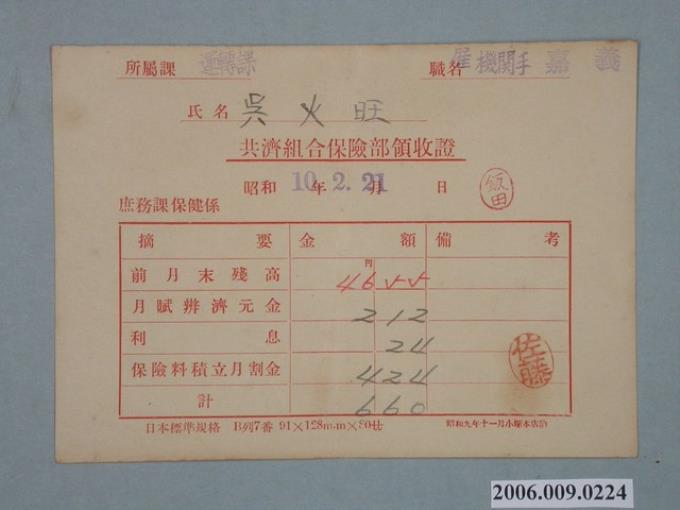 所屬課 運轉課 職名 雇機關手 嘉義
氏名 吳火旺
共濟組合保險部領收證
昭和 10年2.月21日 飯田
庶務課保健係
摘要 金額 備考
前月末殘高 円 46
月賦辨濟元金 212
利息 24
保險料積立月割金 424 佐藤
計 660
日本標準規格 B列7番 91×128m.m×80廿
昭和九年十一月小塚本店訂
2006.009.0224